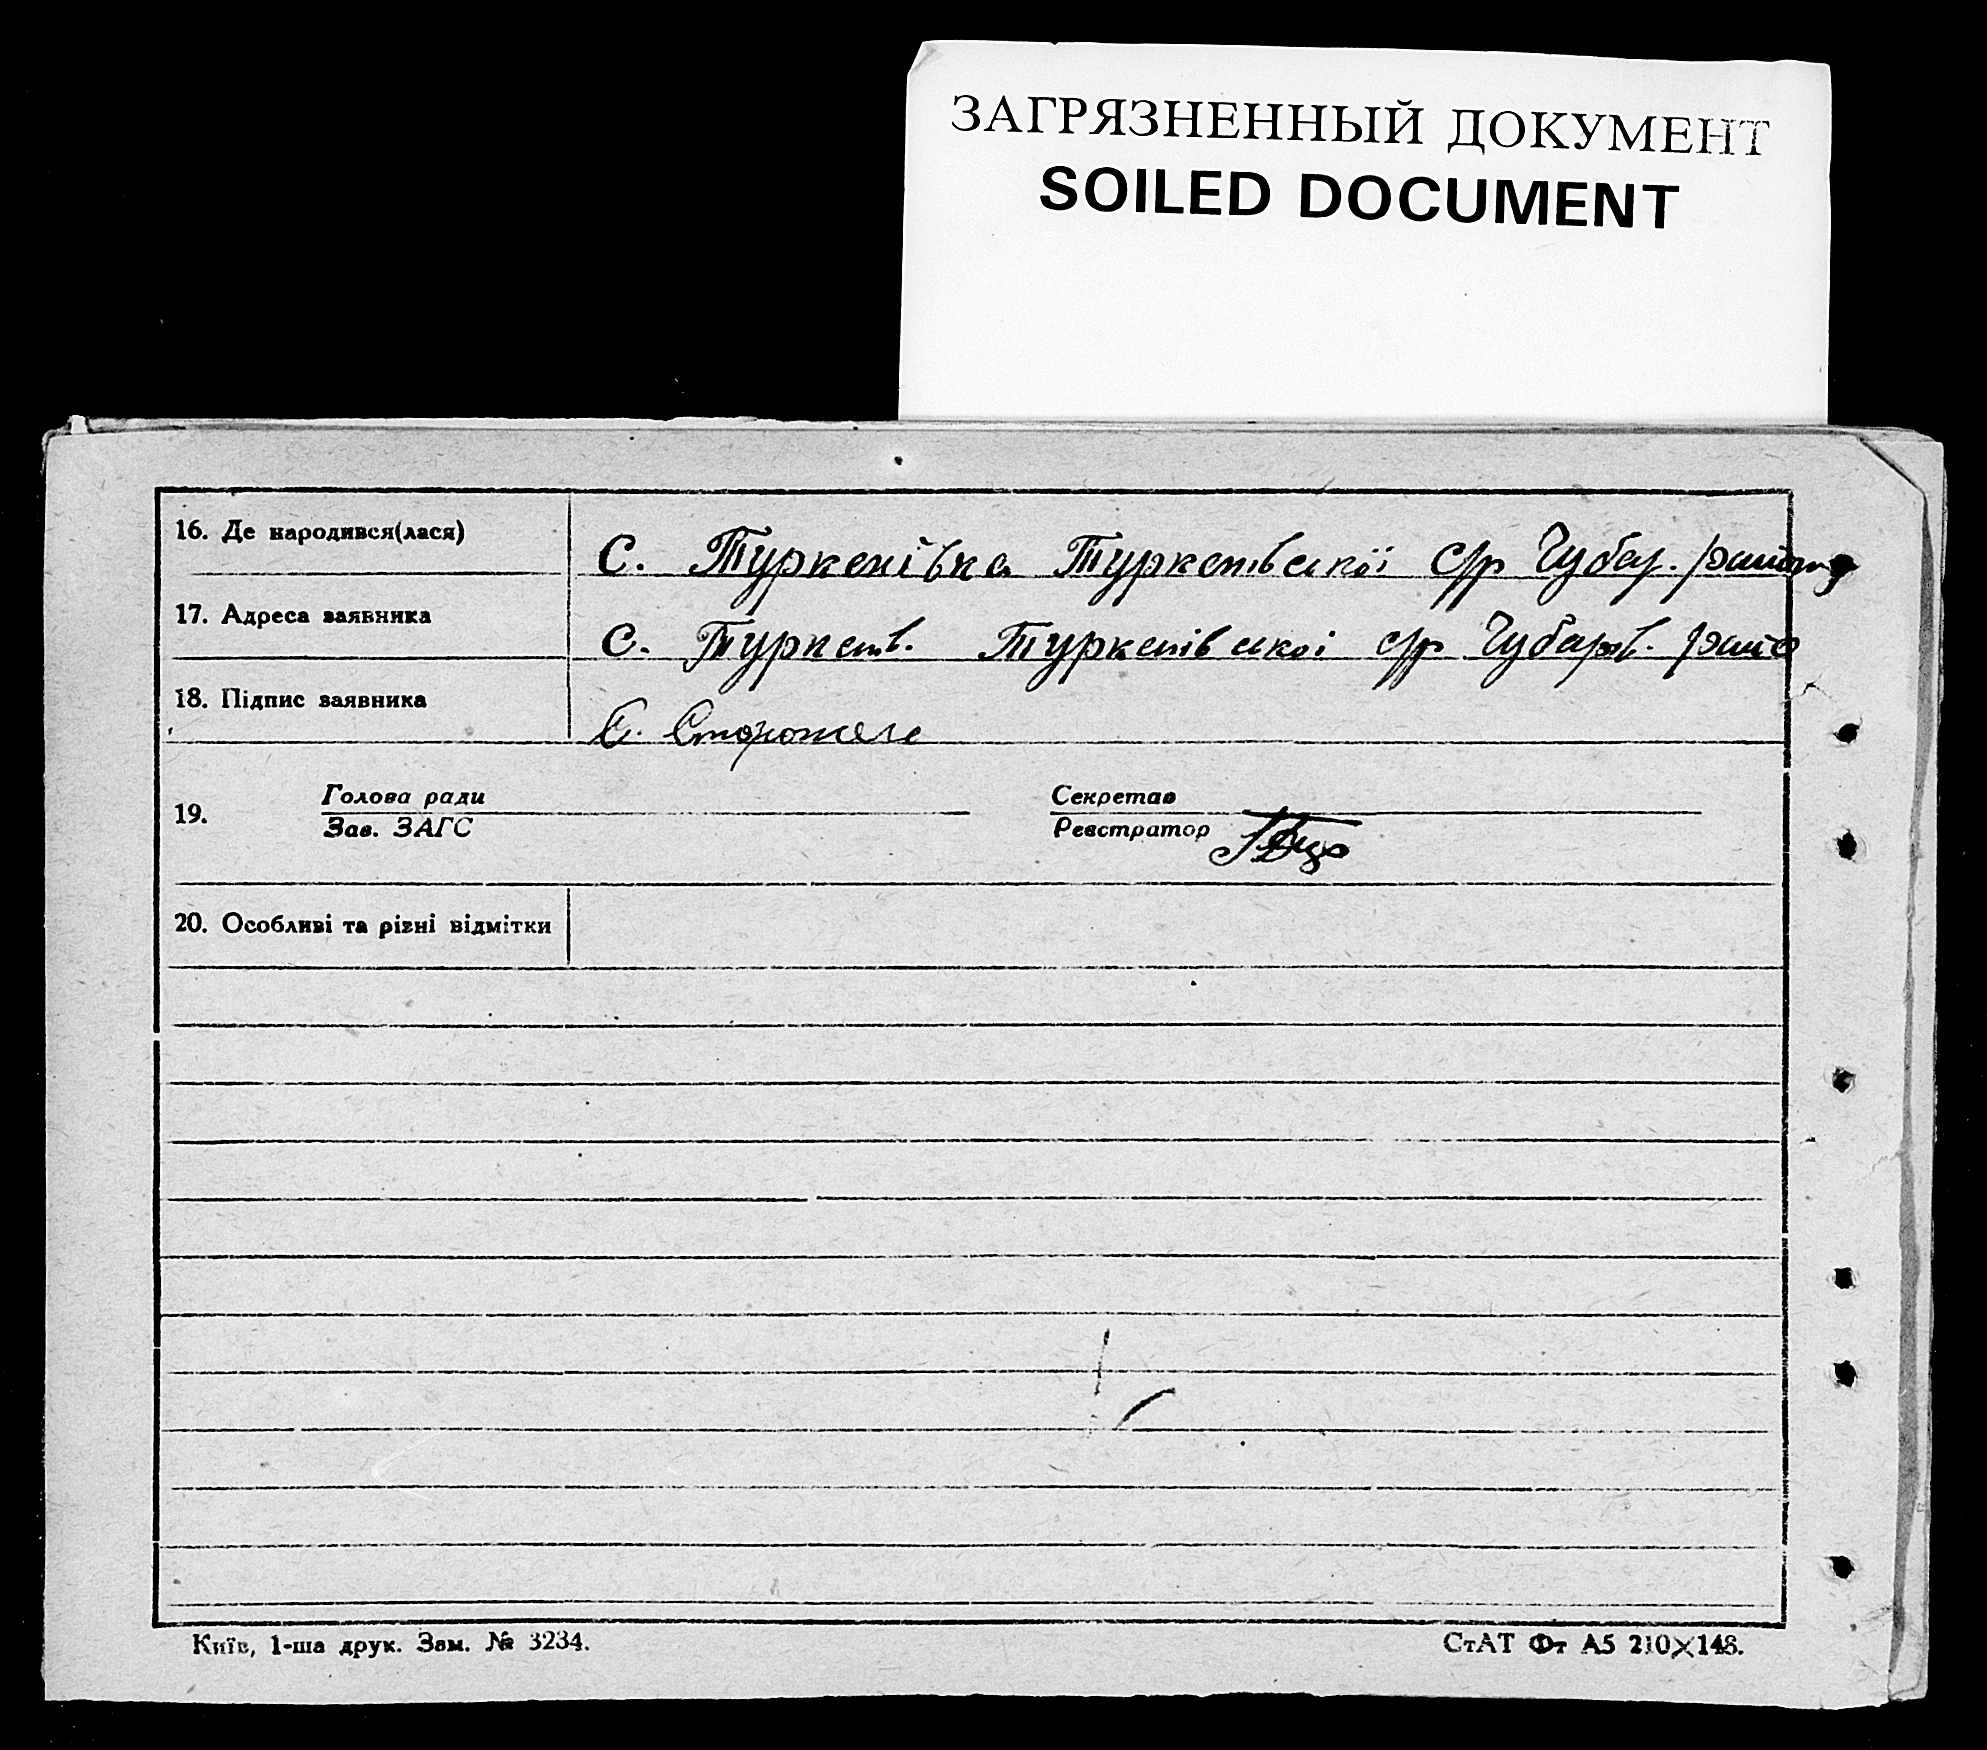 ЗАГРЯЗНЕННЫЙ ДОКУМЕНТ
SOILED DOCUMENT
16. Де народився(лася)
С. Туркенівка Туркенівської с/р Чубар. району
17. Адреса заявника
С. Туркенів. Туркенівскої с/р Чубарів. райо
18. Підпис заявника
Є. Стороже
Голова ради
Секретар
19.
Зав. ЗАГС
Реєстратор
20. Особливі та різні відмітки
Київ, 1-ша друк. Зам. № 3234.
СтАТ Фт А5 210×148.